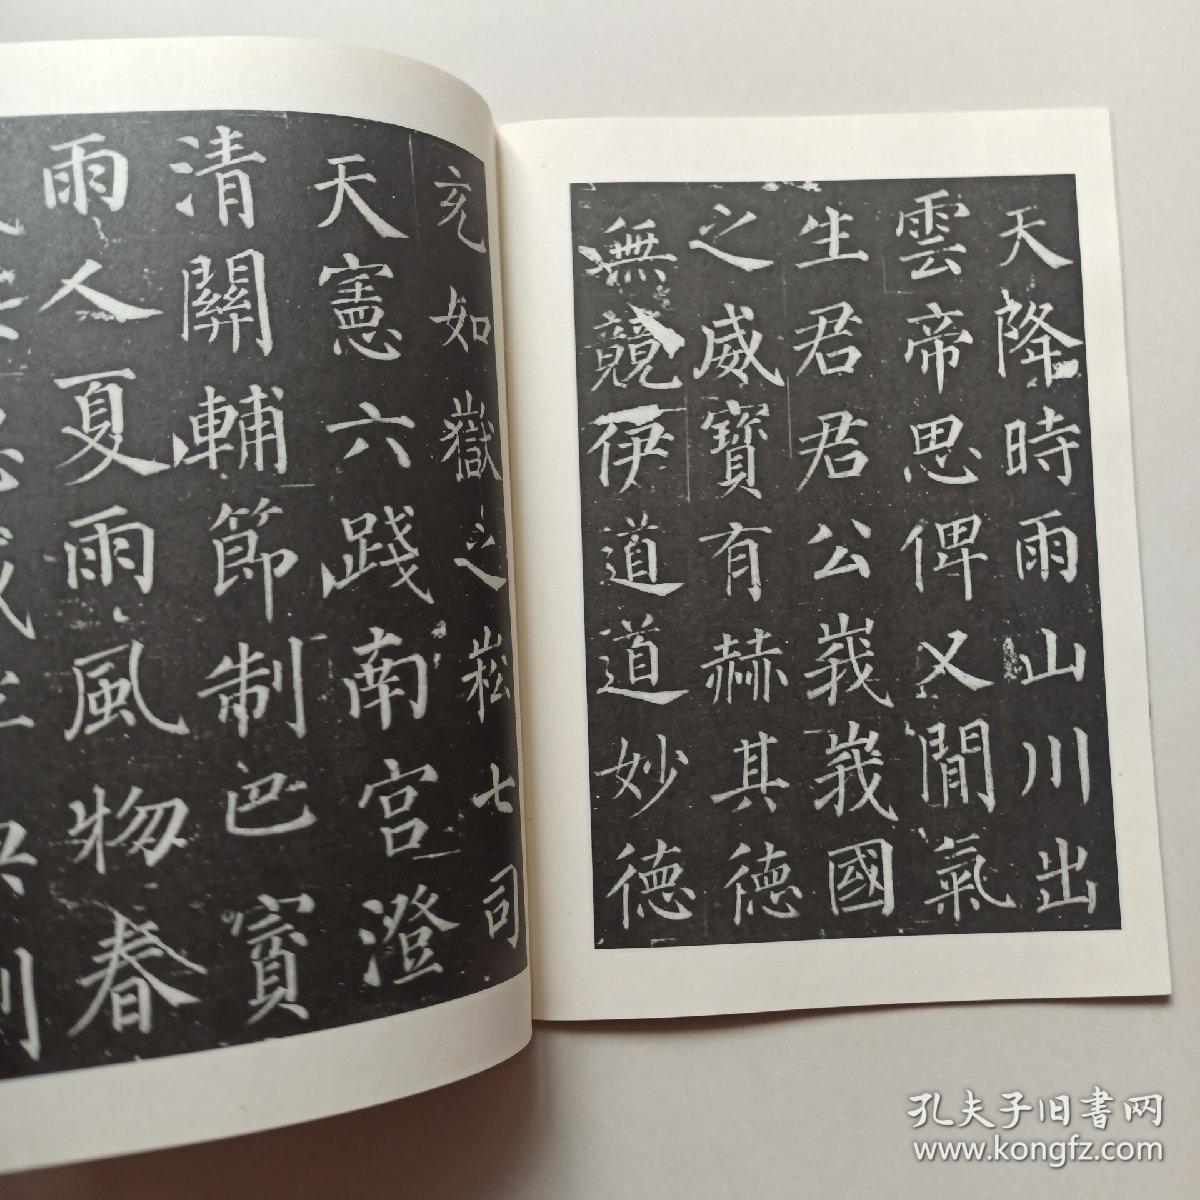 天降時雨山川出
雲帝思俾乂閒氣
生君君公峩峩國
之威寶有赫其德
無競伊道道妙德
充如嶽之崧七司
天憲六踐南宮澄
清關輔節制巴賨
雨人夏雨風物春
孔夫子旧書网
www.kongfz.com